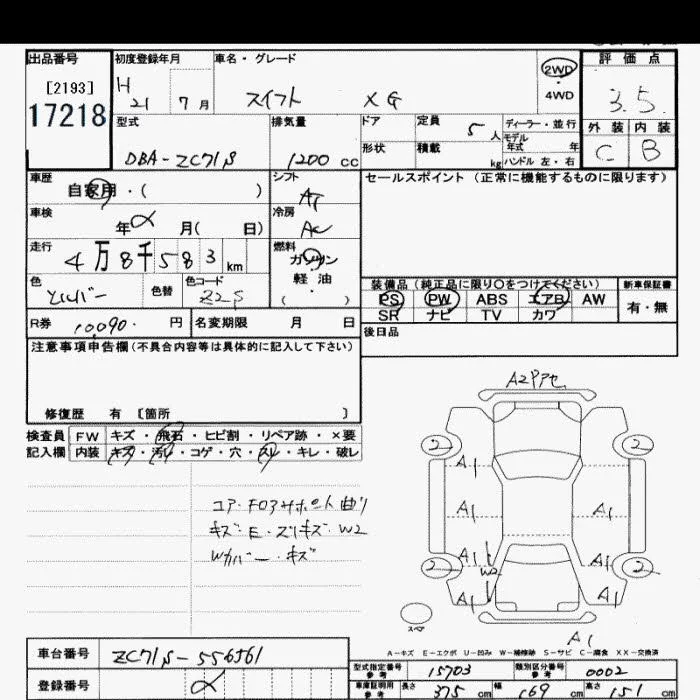 出品番号 初度登録年月 車名・グレード 2WD 評価点
[2193] H 4WD
17218 21 7月 スイフト XG 3.5
型式 排気量 ドア 定員 5人 ディーラー・並行 外装 内装
モデル年式 年
DBA-ZC71S 1200cc 形状 積載 kg ハンドル 左・右 C B
車歴 シフト セールスポイント(正常に機能するものに限ります)
自家用・( ) AT
車検 冷房
年 月( 日) AC
走行 燃料
4万8千583km ガソリン
軽油
( ・ )
色 色替 色コード
シルバー Z2S
装備品(純正品に限り○をつけてください) 新車保証書
PS PW ABS エアB AW 有・無
SR ナビ TV カワ
R券 10,090.円 名変期限 月 日 後日品
注意事項申告欄(不具合内容等は具体的に記入して下さい)
修復歴 有 〔箇所 〕
検査員 FW キズ・飛石・ヒビ割・リペア跡・×要
記入欄 内装 キズ・汚レ・コゲ・穴・スレ・キレ・破レ
コア・Fロアサポート曲り
キズ・E・スリキズ・W2
Wカバー・キズ
A2
2 2
A1
A1 A1
A1 A1
2 W2 2
A1 A1
スペア
A1
A-キズ E-エクボ U-凹み W-補修跡 S-サビ C-腐食 XX-交換済
車台番号 ZC71S-556561
登録番号
型式指定番号 参考 15703 類別区分番号 参考 0002
車庫証明用 参考 長さ 375cm 幅 169cm 高さ 151cm